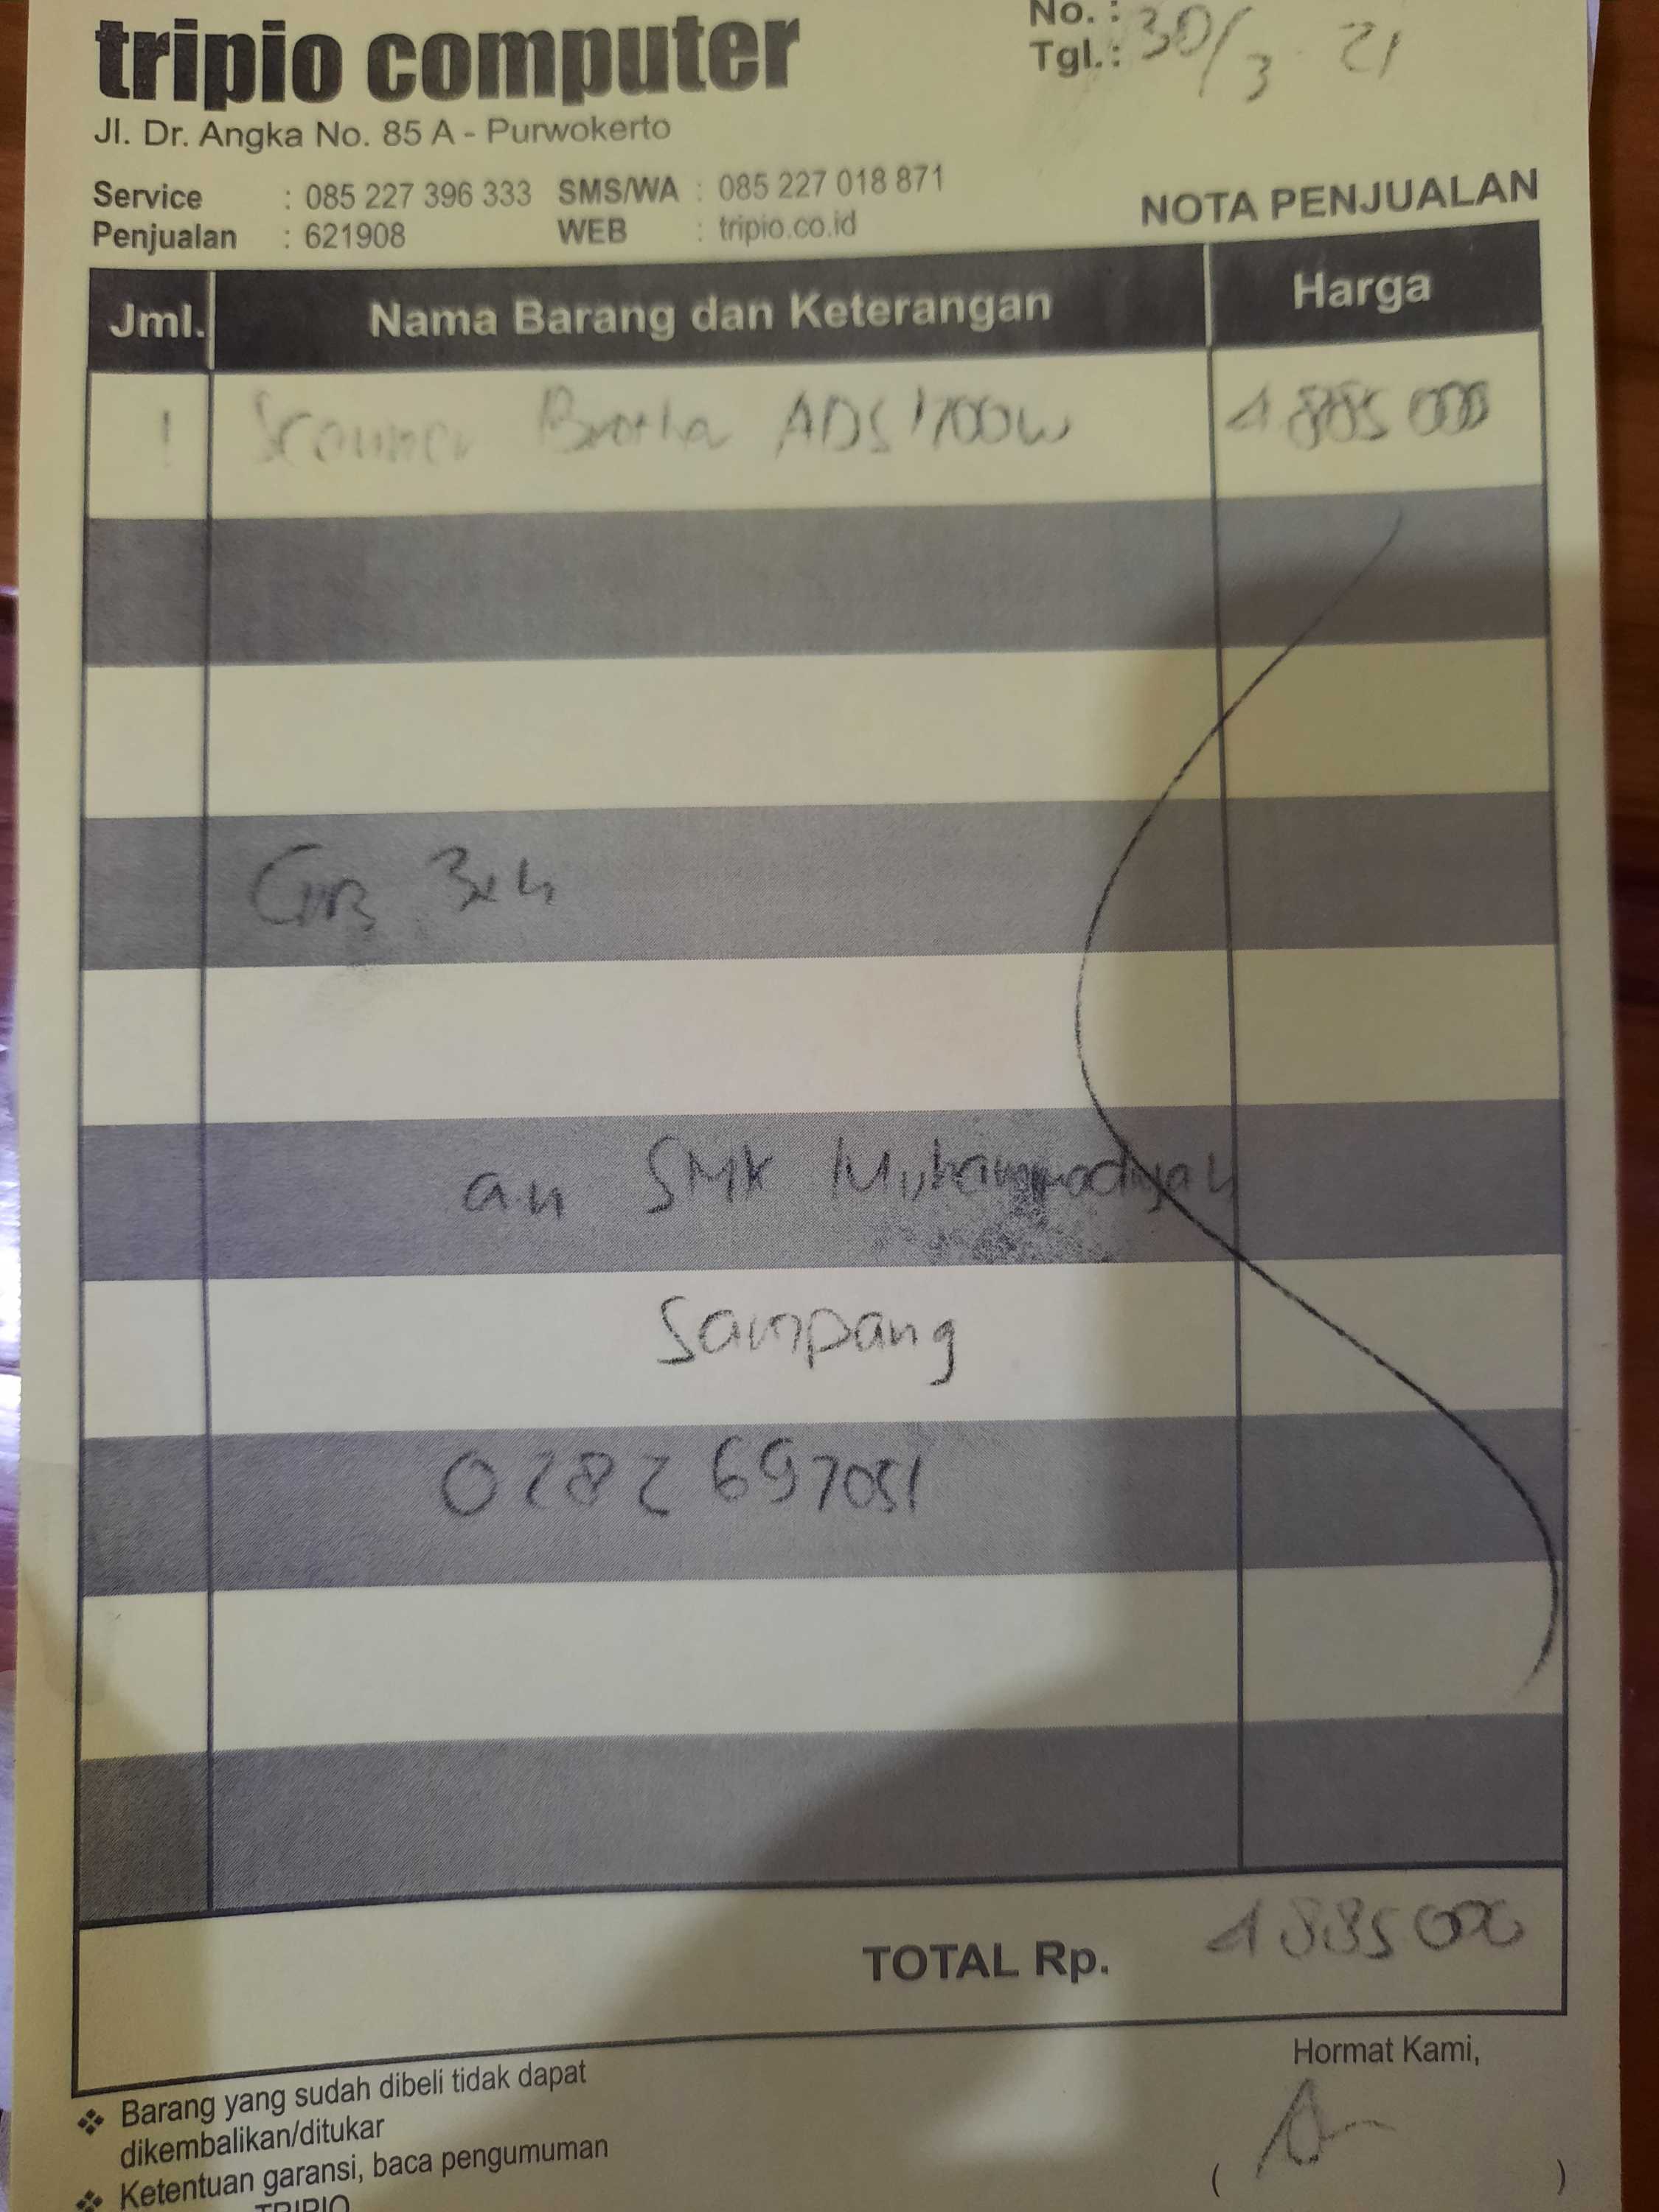 tripio computer
No. :
Tgl. : 30/3 21
Jl. Dr. Angka No. 85 A - Purwokerto
Service : 085 227 396 333 SMS/WA : 085 227 018 871
Penjualan : 621908 WEB : tripio.co.id
NOTA PENJUALAN
Jml. Nama Barang dan Keterangan Harga
1 Scanner Brother ADS 1700w 4885 000
an SMK Muhammadiyah
Sampang
0282 697051
TOTAL Rp. 4885 000
Hormat Kami,
( )
❖ Barang yang sudah dibeli tidak dapat
dikembalikan/ditukar
❖ Ketentuan garansi, baca pengumuman
TRIPIO